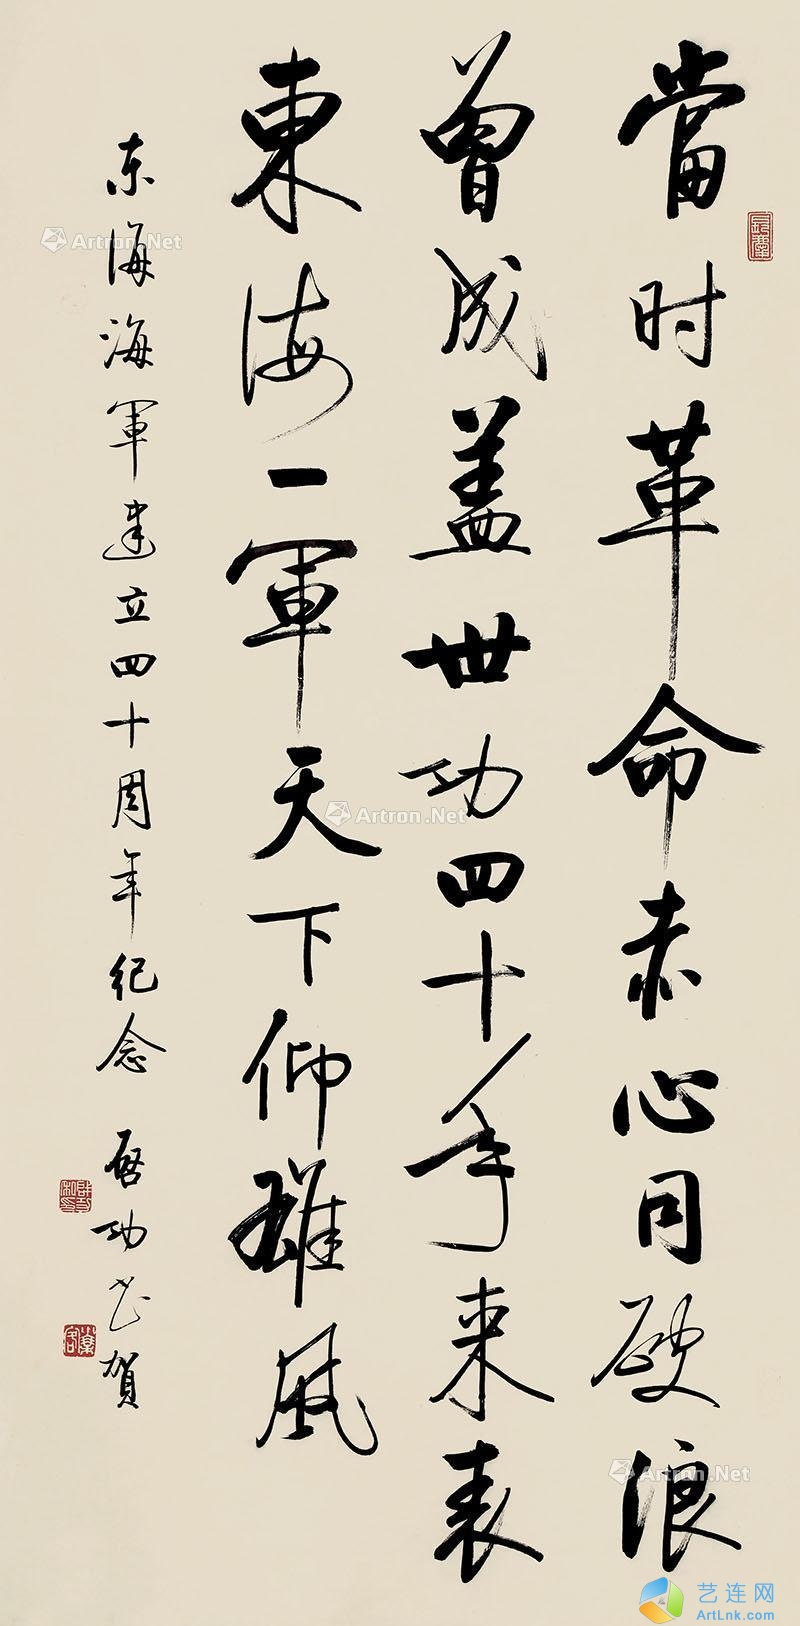 當时革命赤心同破浪
曾成盖世功四十年来表
東海一軍天下仰雄風
东海海軍建立四十周年纪念 启功书贺
Artron.Net
Artron.Net
Artron.Net
艺连网
ArtLnk.com